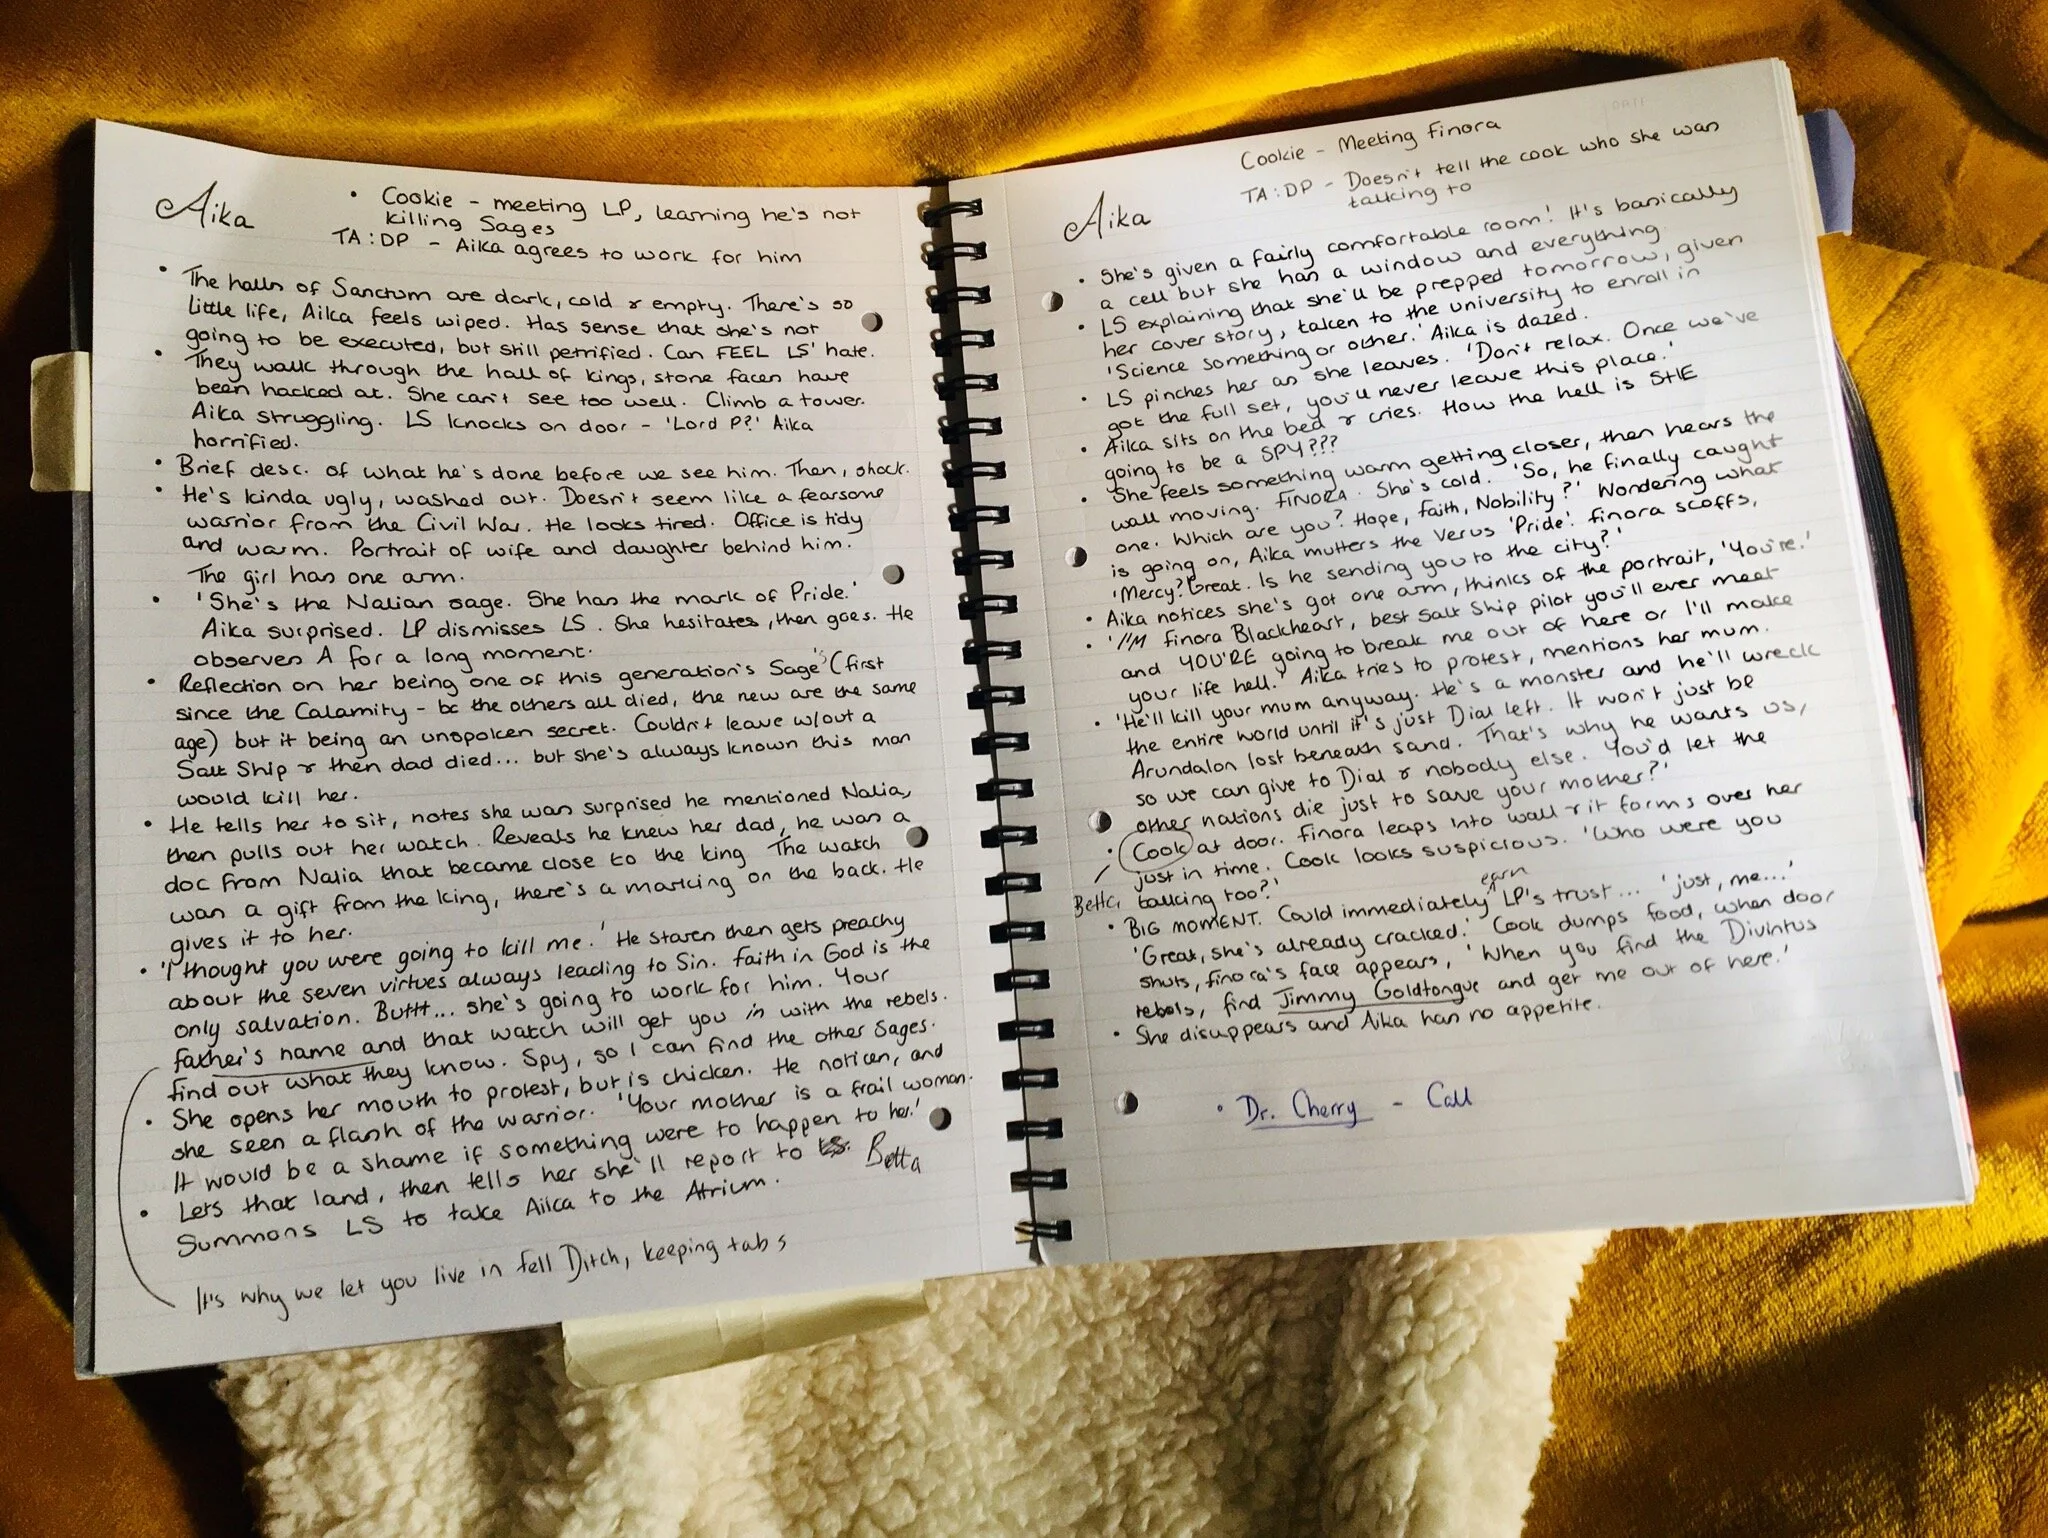 Aika
• Cookie - meeting LP, learning he's not
killing Sages
TA:DP - Aika agrees to work for him
• The halls of Sanctum are dark, cold & empty. There's so
little life, Aika feels wiped. Has sense that she's not
going to be executed, but still petrified. Can FEEL LS' hate.
• They walk through the hall of kings, stone faces have
been hacked at. She can't see too well. Climb a tower.
Aika struggling. LS knocks on door - 'Lord P?' Aika
horrified.
• Brief desc. of what he's done before we see him. Then, shock.
• He's kinda ugly, washed out. Doesn't seem like a fearsome
warrior from the Civil War. He looks tired. Office is tidy
and warm. Portrait of wife and daughter behind him.
The girl has one arm.
• 'She's the Nalian sage. She has the mark of Pride.'
Aika surprised. LP dismisses LS. She hesitates, then goes. He
observes A for a long moment.
• Reflection on her being one of this generation's Sage's (first
since the Calamity - bc the others all died, the new are the same
age) but it being an unspoken secret. Couldn't leave w/out a
Salt Ship & then dad died... but she's always known this man
would kill her.
• He tells her to sit, notes she was surprised he mentioned Nalia,
then pulls out her watch. Reveals he knew her dad, he was a
doc from Nalia that became close to the king. The watch
was a gift from the king, there's a marking on the back. He
gives it to her.
• 'I thought you were going to kill me.' He stares then gets preachy
about the seven virtues always leading to Sin. Faith in God is the
only salvation. Buttt... she's going to work for him. Your
father's name and that watch will get you in with the rebels.
find out what they know. Spy, so I can find the other Sages.
• She opens her mouth to protest, but is chicken. He notices, and
she seen a flash of the warrior. 'Your mother is a frail woman.
It would be a shame if something were to happen to her.'
• Lets that land, then tells her she'll report to LS. Betta
Summons LS to take Aika to the Atrium.
It's why we let you live in Fell Ditch, keeping tabs
Cookie - Meeting Finora
TA:DP - Doesn't tell the cook who she was
talking to
Aika
• She's given a fairly comfortable room! It's basically
a cell but she has a window and everything.
• LS explaining that she'll be prepped tomorrow, given
her cover story, taken to the university to enroll in
'Science something or other.' Aika is dazed.
• LS pinches her as she leaves. 'Don't relax. Once we've
got the full set, you'll never leave this place.'
• Aika sits on the bed & cries. How the hell is SHE
going to be a SPY???
• She feels something warm getting closer, then hears the
wall moving. FINORA. She's cold. 'So, he finally caught
one. Which are you? Hope, Faith, Nobility?' Wondering what
is going on, Aika mutters the Verus 'Pride'. Finora scoffs,
'Mercy? Great. Is he sending you to the city?'
• Aika notices she's got one arm, thinks of the portrait, 'You're.'
• 'I'M Finora Blackheart, best Salt Ship pilot you'll ever meet
and YOU'RE going to break me out of here or I'll make
your life hell.' Aika tries to protest, mentions her mum.
• 'He'll kill your mum anyway. He's a monster and he'll wreck
the entire world until it's just Dial left. It won't just be
Arundalon lost beneath sand. That's why he wants us,
so we can give to Dial & nobody else. You'd let the
other nations die just to save your mother?'
• Cook at door. Finora leaps into wall & it forms over her
just in time. Cook looks suspicious. 'Who were you
talking too?'
• BIG MOMENT. Could immediately earn LP's trust... 'just, me...'
'Great, she's already cracked.' Cook dumps food, when door
shuts, Finora's face appears, 'When you find the Divintus
rebels, find Jimmy Goldtongue and get me out of here.'
• She disuppears and Aika has no appetite.
• Dr. Cherry - Call